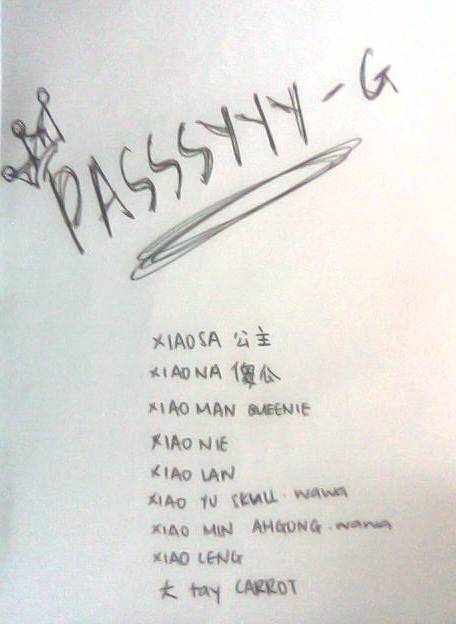 PASSSYYY-G
XIAOSA 公主
XIAONA 傻瓜
XIAO MAN QUEENIE
XIAO NIE
XIAO LAN
XIAO YU SKULL.wawa
XIAO MIN AHGONG.wawa
XIAO LENG
大 tay CARROT